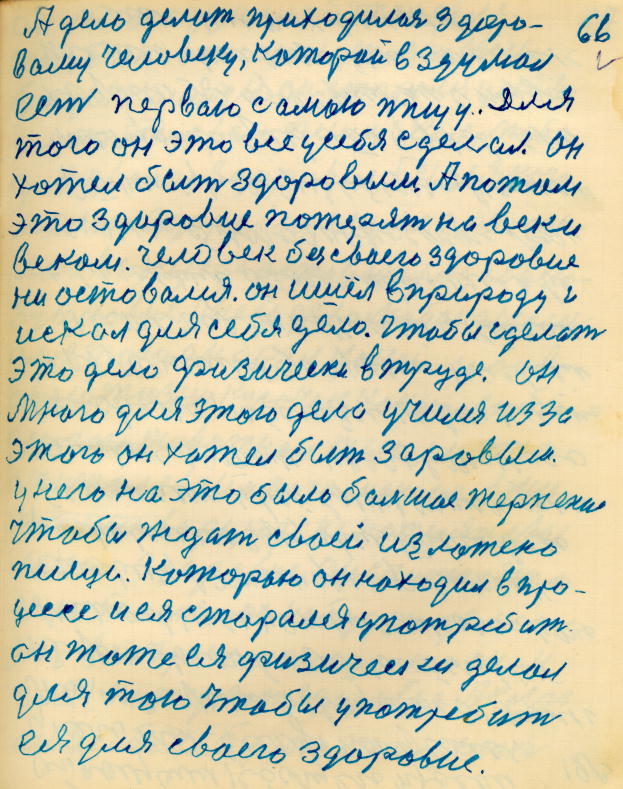 66
А дело делат приходился здоро-
вому человеку, которой вздумал
сест перваю самою пищу.. Для
того он это все усебя сделал. он
хотел быт здоровым А потом
это здоровие потерят на веки
веком. Человек без своего здоровие
ни оставался. он ишёл в природу и
искал для себя дело. Чтобы сделат
это дело физически в труде. он
много для этого дела учился из за
этого он хотел быт заровым.
у него на это было болшое терпение
чтобы ждат своей изложено
пищи. Которою он находил в про-
цессе и ея старался употребит.
он тоже ея физически делал
для того чтобы употребит
ея для своего здоровие.